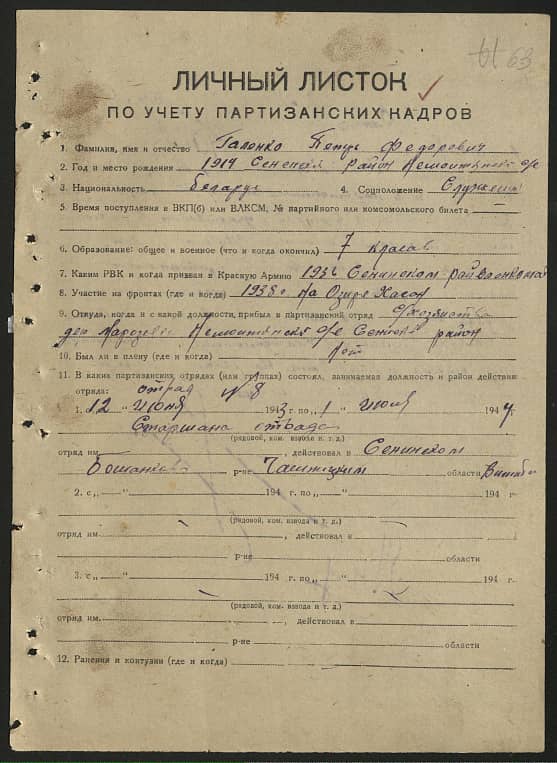 63
ЛИЧНЫЙ ЛИСТОК
ПО УЧЕТУ ПАРТИЗАНСКИХ КАДРОВ
1. Фамилия, имя и отчество Галонко Петр Федорович
2. Год и место рождения 1914 район
3. Национальность Беларус 4. Соцположение
5. Время поступления в ВКП(б) или ВЛКСМ, № партийного или комсомольского билета
6. Образование: общее и военное (что и когда окончил) 7
7. Каким РВК и когда призван в Красную Армию 1936 Сенинском
8. Участие на фронтах (где и когда) 1938 г на Озире Хасан
9. Откуда, когда и с какой должности прибыл в партизанский отряд
район
10. Был ли в плену (где и когда)
11. В каких партизанских отрядах (или группах) состоял, занимаемая должность и район действия
отряда: отрад № 8
1. „12 " июня 1943 г. по „1 " июля 1944
Старшана отрада
(рядовой, ком. взвода и т. д.)
отряд им. , действовал в Сенинском
р-не области
2. с „ " 194 г. по „ " 194 г
(рядовой, ком. взвода и т. д.)
отряд им. , действовал в
р-не области
3. с „ " 194 г. по „ " 194 г.
(рядовой, ком. взвода и т. д.)
отряд им. , действовал в
р-не области
12. Ранения и контузии (где и когда)